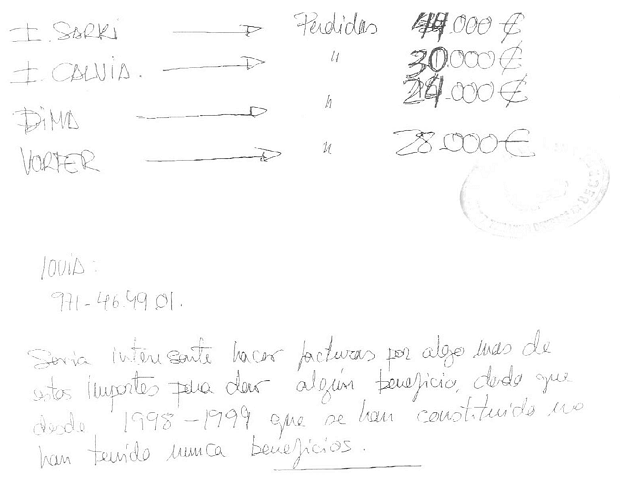 I. SARKI → Perdidas 44.000 €
I. CALVIA. → " 30.000 €
DIMA → " 24.000 €
VORTER → " 28.000 €
971-46.49.01.
Seria interesante hacer facturas por algo mas de
estos importes para dar algún beneficio, dado que
desde 1998-1999 que se han constituido no
han tenido nunca beneficios.